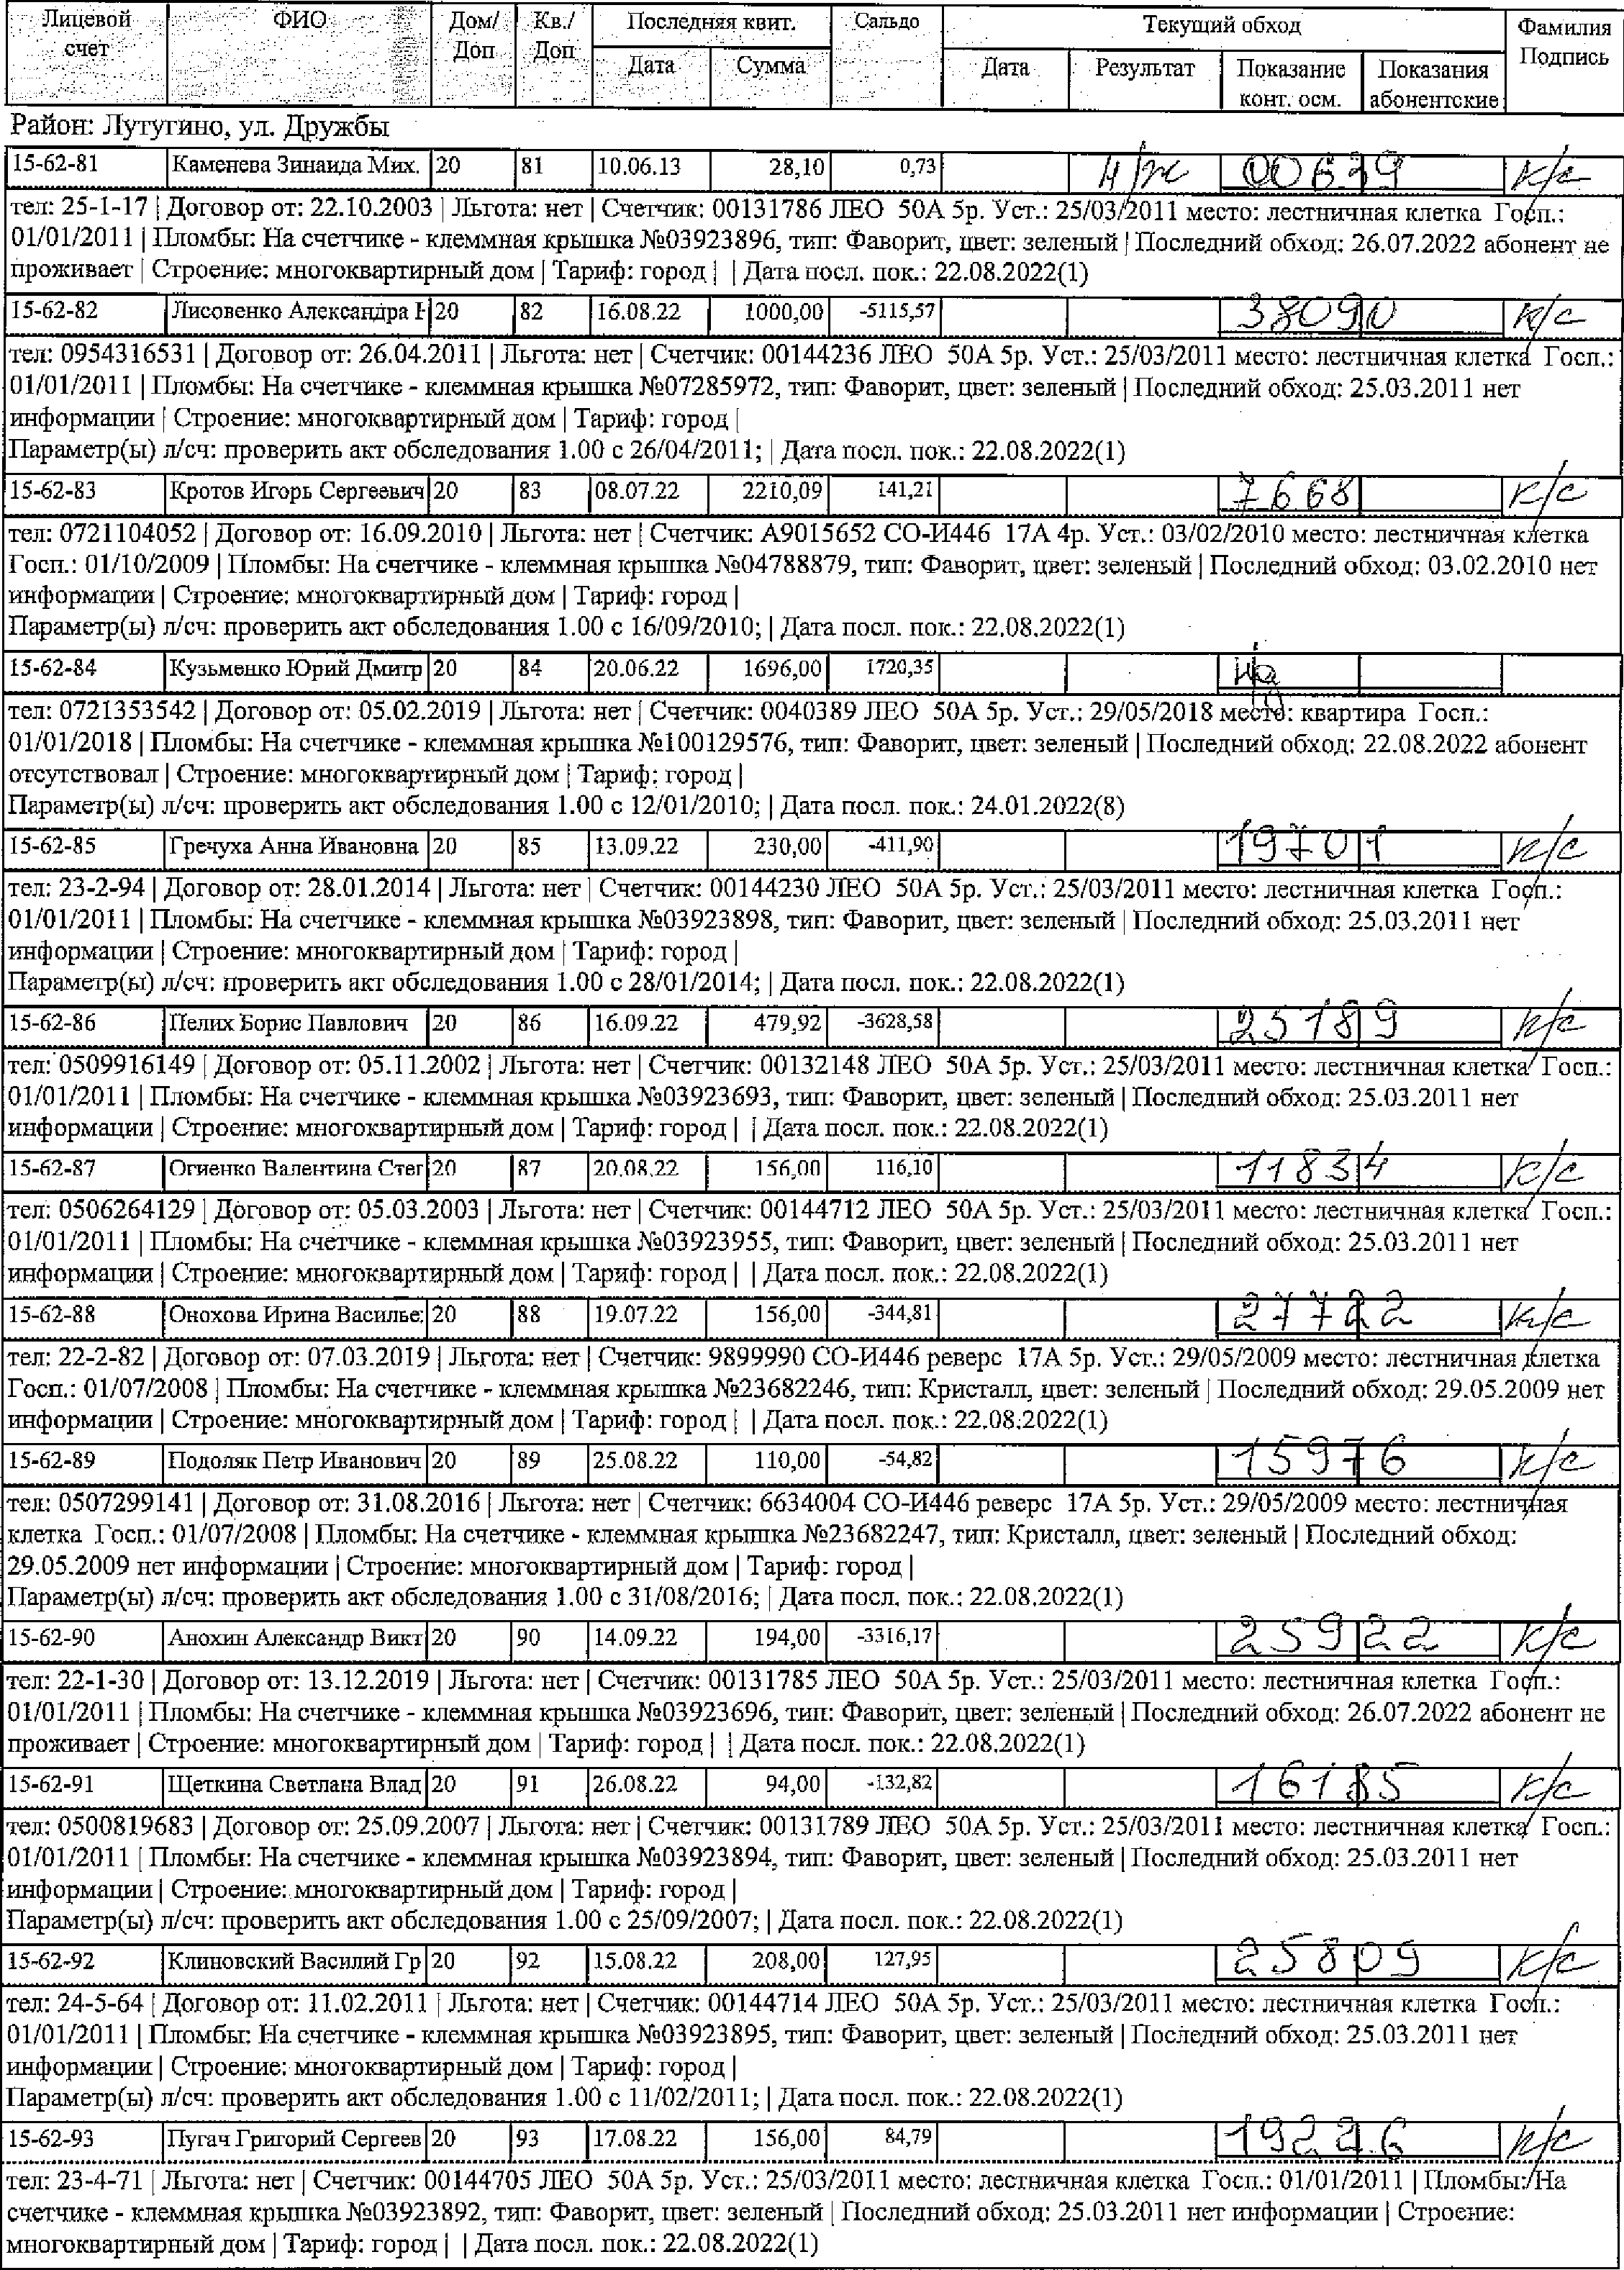 Лицевой счет | ФИО | Дом/ Доп | Кв./ Доп | Последняя квит. | Сальдо | Текущий обход | Фамилия Подпись
Дата | Сумма | Дата | Результат | Показание конт. осм. | Показания абонентские
Район: Лутугино, ул. Дружбы
15-62-81 | Каменева Зинаида Мих. | 20 | 81 | 10.06.13 | 28,10 | 0,73 | н/ж | 00639 | к/с
тел: 25-1-17 | Договор от: 22.10.2003 | Льгота: нет | Счетчик: 00131786 ЛЕО 50А 5р. Уст.: 25/03/2011 место: лестничная клетка Госп.:
01/01/2011 | Пломбы: На счетчике - клеммная крышка №03923896, тип: Фаворит, цвет: зеленый | Последний обход: 26.07.2022 абонент не
проживает | Строение: многоквартирный дом | Тариф: город | | Дата посл. пок.: 22.08.2022(1)
15-62-82 | Лисовенко Александра Н | 20 | 82 | 16.08.22 | 1000,00 | -5115,57 | 38090 | к/с
тел: 0954316531 | Договор от: 26.04.2011 | Льгота: нет | Счетчик: 00144236 ЛЕО 50А 5р. Уст.: 25/03/2011 место: лестничная клетка Госп.:
01/01/2011 | Пломбы: На счетчике - клеммная крышка №07285972, тип: Фаворит, цвет: зеленый | Последний обход: 25.03.2011 нет
информации | Строение: многоквартирный дом | Тариф: город |
Параметр(ы) л/сч: проверить акт обследования 1.00 с 26/04/2011; | Дата посл. пок.: 22.08.2022(1)
15-62-83 | Кротов Игорь Сергеевич | 20 | 83 | 08.07.22 | 2210,09 | 141,21 | 7668 | к/с
тел: 0721104052 | Договор от: 16.09.2010 | Льгота: нет | Счетчик: А9015652 СО-И446 17А 4р. Уст.: 03/02/2010 место: лестничная клетка
Госп.: 01/10/2009 | Пломбы: На счетчике - клеммная крышка №04788879, тип: Фаворит, цвет: зеленый | Последний обход: 03.02.2010 нет
информации | Строение: многоквартирный дом | Тариф: город |
Параметр(ы) л/сч: проверить акт обследования 1.00 с 16/09/2010; | Дата посл. пок.: 22.08.2022(1)
15-62-84 | Кузьменко Юрий Дмитр | 20 | 84 | 20.06.22 | 1696,00 | 1720,35
тел: 0721353542 | Договор от: 05.02.2019 | Льгота: нет | Счетчик: 0040389 ЛЕО 50А 5р. Уст.: 29/05/2018 место: квартира Госп.:
01/01/2018 | Пломбы: На счетчике - клеммная крышка №100129576, тип: Фаворит, цвет: зеленый | Последний обход: 22.08.2022 абонент
отсутствовал | Строение: многоквартирный дом | Тариф: город |
Параметр(ы) л/сч: проверить акт обследования 1.00 с 12/01/2010; | Дата посл. пок.: 24.01.2022(8)
15-62-85 | Гречуха Анна Ивановна | 20 | 85 | 13.09.22 | 230,00 | -411,90 | 19701 | к/с
тел: 23-2-94 | Договор от: 28.01.2014 | Льгота: нет | Счетчик: 00144230 ЛЕО 50А 5р. Уст.: 25/03/2011 место: лестничная клетка Госп.:
01/01/2011 | Пломбы: На счетчике - клеммная крышка №03923898, тип: Фаворит, цвет: зеленый | Последний обход: 25.03.2011 нет
информации | Строение: многоквартирный дом | Тариф: город |
Параметр(ы) л/сч: проверить акт обследования 1.00 с 28/01/2014; | Дата посл. пок.: 22.08.2022(1)
15-62-86 | Пелих Борис Павлович | 20 | 86 | 16.09.22 | 479,92 | -3628,58 | 25189 | к/с
тел: 0509916149 | Договор от: 05.11.2002 | Льгота: нет | Счетчик: 00132148 ЛЕО 50А 5р. Уст.: 25/03/2011 место: лестничная клетка Госп.:
01/01/2011 | Пломбы: На счетчике - клеммная крышка №03923693, тип: Фаворит, цвет: зеленый | Последний обход: 25.03.2011 нет
информации | Строение: многоквартирный дом | Тариф: город | | Дата посл. пок.: 22.08.2022(1)
15-62-87 | Огиенко Валентина Степ | 20 | 87 | 20.08.22 | 156,00 | 116,10 | 11834 | к/с
тел: 0506264129 | Договор от: 05.03.2003 | Льгота: нет | Счетчик: 00144712 ЛЕО 50А 5р. Уст.: 25/03/2011 место: лестничная клетка Госп.:
01/01/2011 | Пломбы: На счетчике - клеммная крышка №03923955, тип: Фаворит, цвет: зеленый | Последний обход: 25.03.2011 нет
информации | Строение: многоквартирный дом | Тариф: город | | Дата посл. пок.: 22.08.2022(1)
15-62-88 | Онохова Ирина Василье | 20 | 88 | 19.07.22 | 156,00 | -344,81 | 27722 | к/с
тел: 22-2-82 | Договор от: 07.03.2019 | Льгота: нет | Счетчик: 9899990 СО-И446 реверс 17А 5р. Уст.: 29/05/2009 место: лестничная клетка
Госп.: 01/07/2008 | Пломбы: На счетчике - клеммная крышка №23682246, тип: Кристалл, цвет: зеленый | Последний обход: 29.05.2009 нет
информации | Строение: многоквартирный дом | Тариф: город | | Дата посл. пок.: 22.08.2022(1)
15-62-89 | Подоляк Петр Иванович | 20 | 89 | 25.08.22 | 110,00 | -54,82 | 15976 | к/с
тел: 0507299141 | Договор от: 31.08.2016 | Льгота: нет | Счетчик: 6634004 СО-И446 реверс 17А 5р. Уст.: 29/05/2009 место: лестничная
клетка Госп.: 01/07/2008 | Пломбы: На счетчике - клеммная крышка №23682247, тип: Кристалл, цвет: зеленый | Последний обход:
29.05.2009 нет информации | Строение: многоквартирный дом | Тариф: город |
Параметр(ы) л/сч: проверить акт обследования 1.00 с 31/08/2016; | Дата посл. пок.: 22.08.2022(1)
15-62-90 | Анохин Александр Викт | 20 | 90 | 14.09.22 | 194,00 | -3316,17 | 25922 | к/с
тел: 22-1-30 | Договор от: 13.12.2019 | Льгота: нет | Счетчик: 00131785 ЛЕО 50А 5р. Уст.: 25/03/2011 место: лестничная клетка Госп.:
01/01/2011 | Пломбы: На счетчике - клеммная крышка №03923696, тип: Фаворит, цвет: зеленый | Последний обход: 26.07.2022 абонент не
проживает | Строение: многоквартирный дом | Тариф: город | | Дата посл. пок.: 22.08.2022(1)
15-62-91 | Щеткина Светлана Влад | 20 | 91 | 26.08.22 | 94,00 | -132,82 | 16185 | к/с
тел: 0500819683 | Договор от: 25.09.2007 | Льгота: нет | Счетчик: 00131789 ЛЕО 50А 5р. Уст.: 25/03/2011 место: лестничная клетка Госп.:
01/01/2011 | Пломбы: На счетчике - клеммная крышка №03923894, тип: Фаворит, цвет: зеленый | Последний обход: 25.03.2011 нет
информации | Строение: многоквартирный дом | Тариф: город |
Параметр(ы) л/сч: проверить акт обследования 1.00 с 25/09/2007; | Дата посл. пок.: 22.08.2022(1)
15-62-92 | Клиновский Василий Гр | 20 | 92 | 15.08.22 | 208,00 | 127,95 | 25809 | к/с
тел: 24-5-64 | Договор от: 11.02.2011 | Льгота: нет | Счетчик: 00144714 ЛЕО 50А 5р. Уст.: 25/03/2011 место: лестничная клетка Госп.:
01/01/2011 | Пломбы: На счетчике - клеммная крышка №03923895, тип: Фаворит, цвет: зеленый | Последний обход: 25.03.2011 нет
информации | Строение: многоквартирный дом | Тариф: город |
Параметр(ы) л/сч: проверить акт обследования 1.00 с 11/02/2011; | Дата посл. пок.: 22.08.2022(1)
15-62-93 | Пугач Григорий Сергеев | 20 | 93 | 17.08.22 | 156,00 | 84,79 | 19226 | к/с
тел: 23-4-71 | Льгота: нет | Счетчик: 00144705 ЛЕО 50А 5р. Уст.: 25/03/2011 место: лестничная клетка Госп.: 01/01/2011 | Пломбы: На
счетчике - клеммная крышка №03923892, тип: Фаворит, цвет: зеленый | Последний обход: 25.03.2011 нет информации | Строение:
многоквартирный дом | Тариф: город | | Дата посл. пок.: 22.08.2022(1)